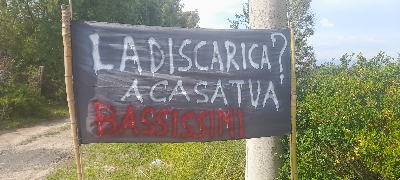 LA DISCARICA?
A CASA TUA
BASSISSIMI